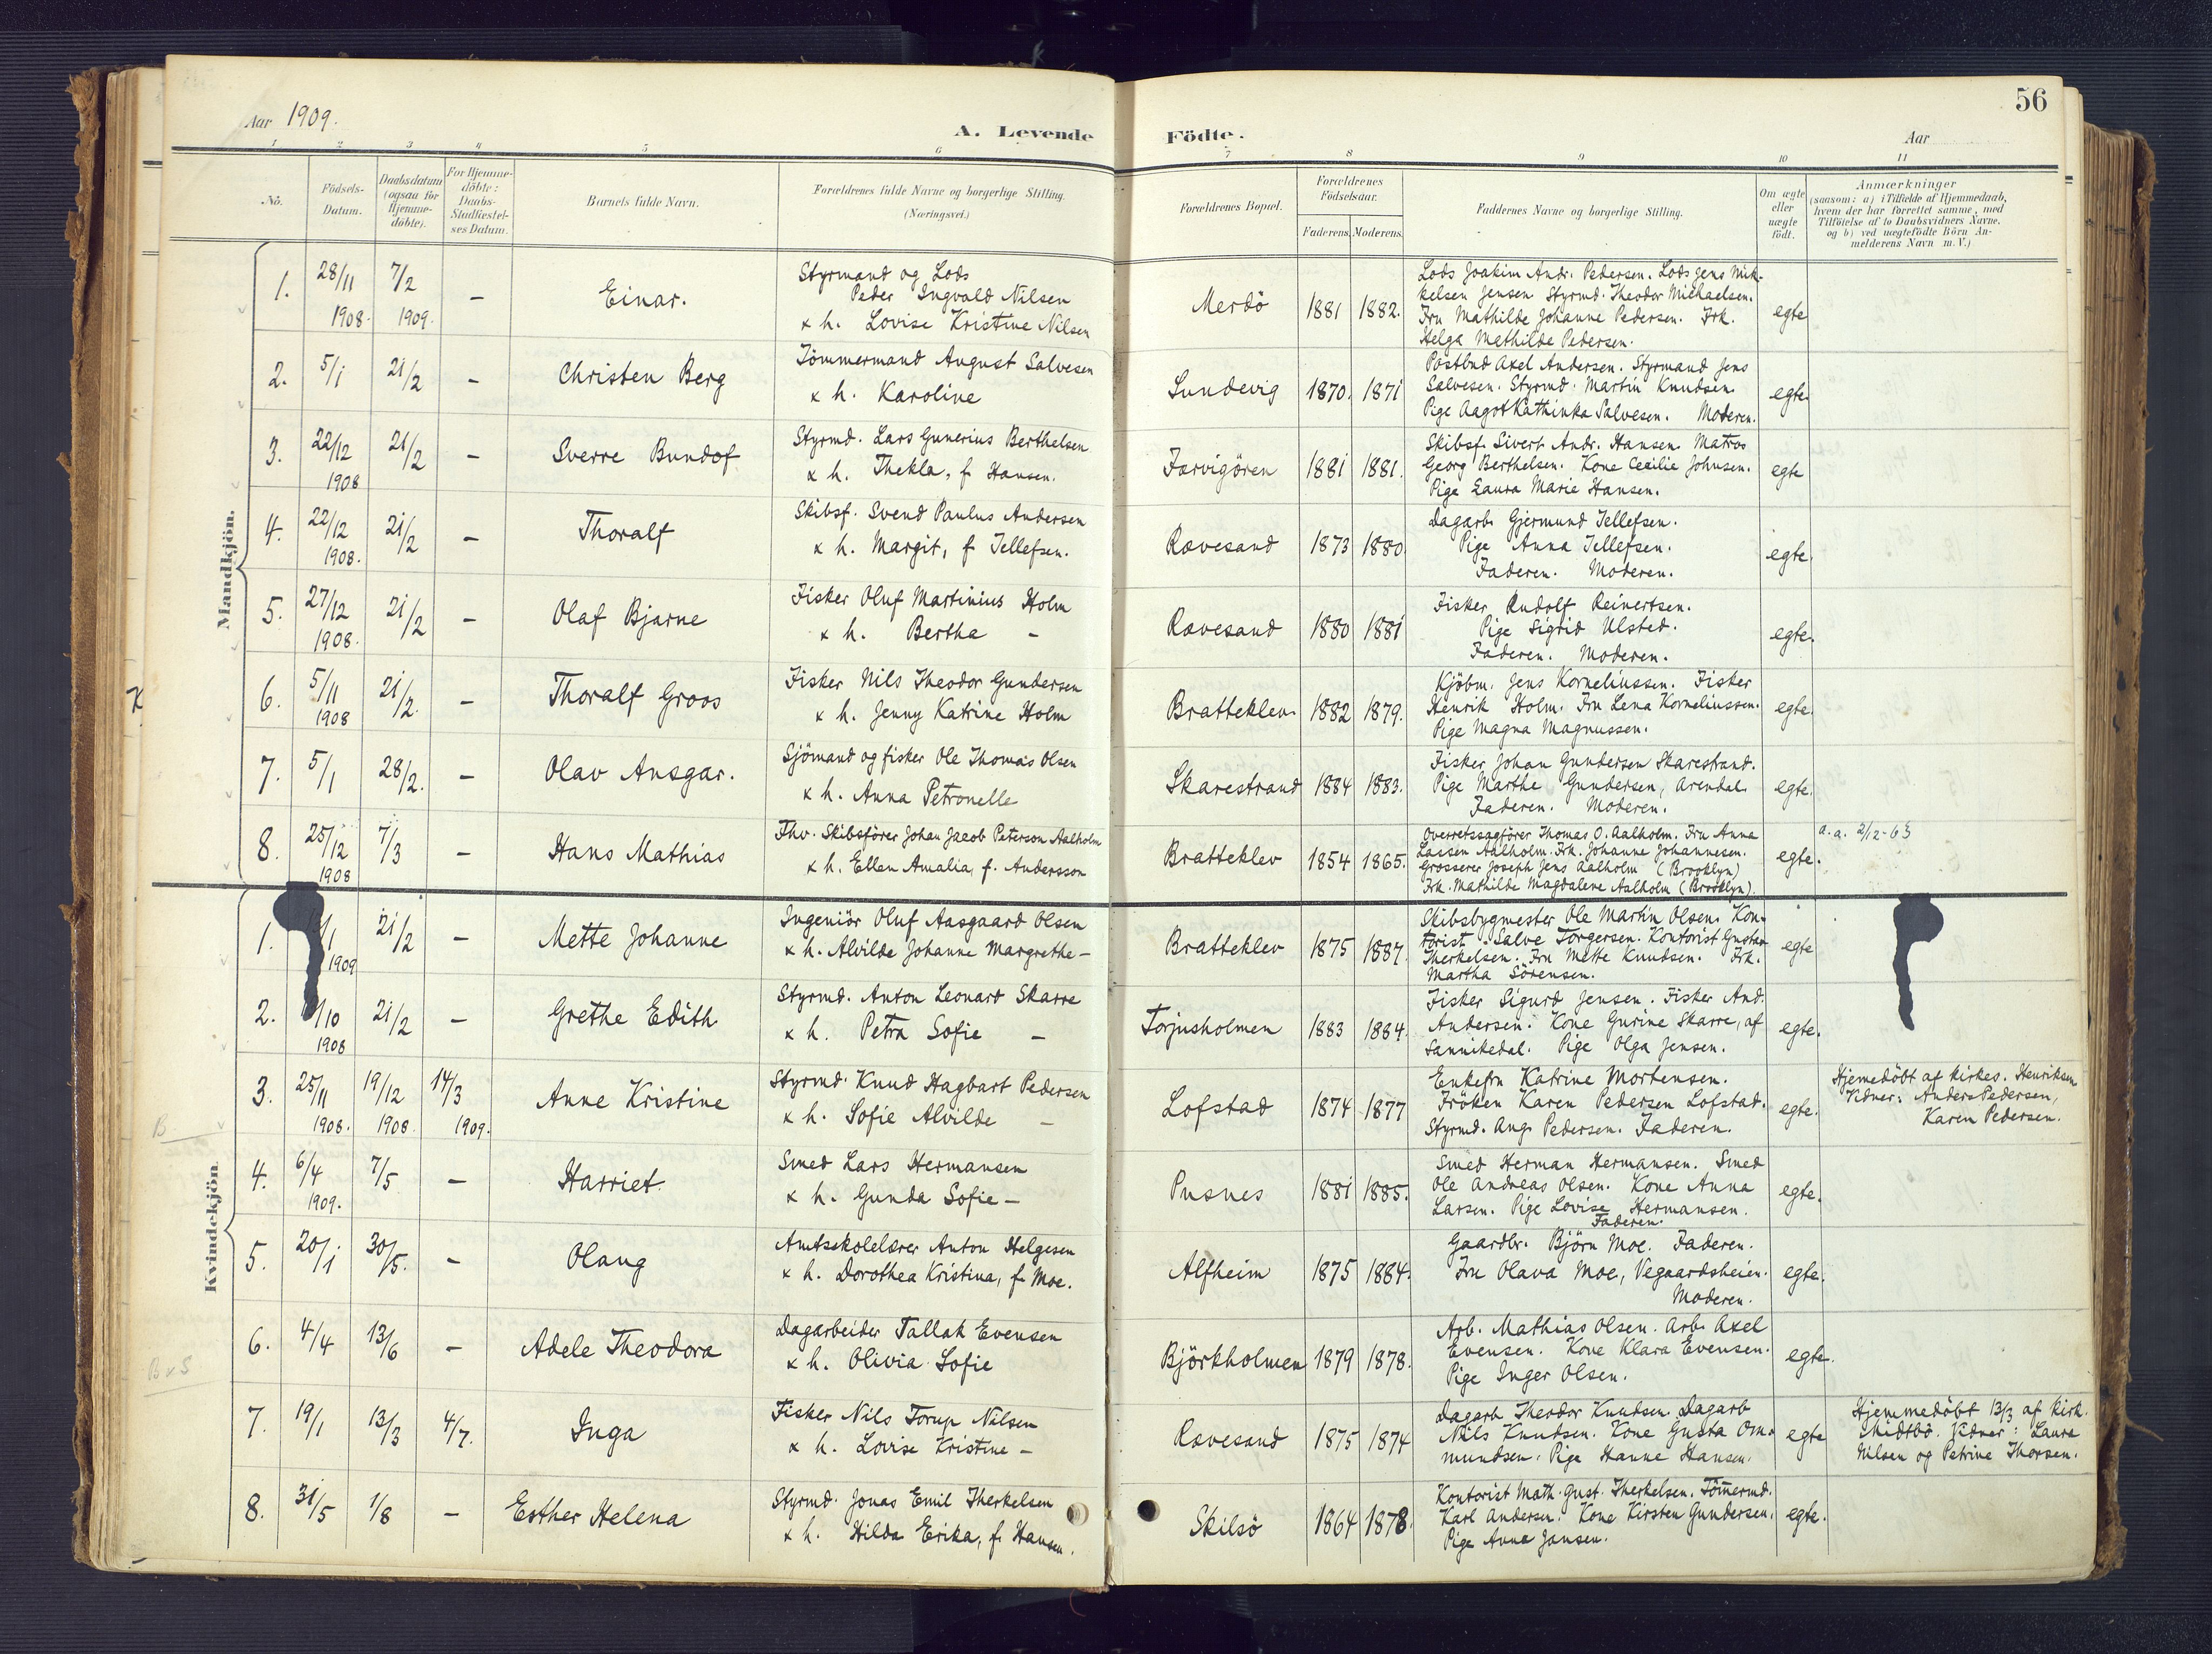 56
Aar 1909.
A. Levende Födte.
Aar
1 2 3 4 5 6 7 8 9 10 11
No.
Födsels-
Datum.
Daabsdatum
(ogsaa for
Hjemme-
döbte).
For Hjemme-
döbte:
Daabs-
Stadfæstel-
ses Datum.
Barnets fulde Navn.
Forældrenes fulde Navne og borgerlige Stilling.
(Næringsvei.)
Forældrenes Bopæl.
Forældrenes
Födselsaar.
Faderens. Moderens.
Faddernes Navne og borgerlige Stilling.
Om ægte
eller
uægte
födt.
Anmærkninger
(saasom: a) i Tilfælde af Hjemmedaab,
hvem der har forrettet samme, med
Tilföielse af to Daabsvidners Navne.
og b) ved uægtefödte Börn An-
melderens Navn m. V.)
Mandkjön.
1. 28/11 1908. 7/2 1909. – Einar.
Styrmand og Lods
Peder Ingvald Nilsen
x h. Lovise Kristine Nilsen
Merdö 1881 1882.
Lods Joakim Andr. Pedersen. Lods Jens Mik-
kelsen Jensen Styrmd. Theodor Michaelsen.
Fru Mathilde Johanne Pedersen. Frk.
Helga Mathilde Pedersen.
egte
2. 5/1 21/2 – Christen Berg
Tömmermand August Salvesen
x h. Karoline
Sundevig 1870. 1871
Postbud Axel Andersen. Styrmand Jens
Salvesen. Styrmd. Martin Knudsen.
Pige Aagot Kathinka Salvesen. Moderen.
egte.
3. 22/12 1908 21/2 – Sverre Bundof
Styrmd. Lars Gunerius Berthelsen
x h. Thekla, f. Hansen.
Færvigören 1881 1881.
Skibsf. Sivert Andr. Hansen. Matros
Georg Berthelsen. Kone Cecilie Johnsen.
Pige Laura Marie Hansen.
egte
4. 22/12 1908. 21/2 – Thoralf
Skibsf. Svend Paulus Andersen
x h. Margit, f. Tellefsen.
Rævesand 1873 1880.
Dagarb. Gjermund Tellefsen.
Pige Anna Tellefsen.
Faderen. Moderen.
egte.
5. 27/12 1908. 21/2 – Olaf Bjarne
Fisker Oluf Martinius Holm
x h. Bertha –
Rævesand 1880 1881
Fisker Rudolf Reinertsen.
Pige Sigrid Ulsted.
Faderen. Moderen.
egte.
6. 5/11 1908 21/2. – Thoralf Groos
Fisker Nils Theodor Gundersen
x h. Jenny Katrine Holm
Bratteklev. 1882 1879.
Kjöbm. Jens Korneliussen. Fisker
Henrik Holm. Fru Lena Korneliussen.
Pige Magna Magnussen.
egte.
7. 5/1 28/2. – Olav Ansgar.
Sjömand og fisker Ole Thomas Olsen
x h. Anna Petronelle
Skarestrand 1884 1883.
Fisker Johan Gundersen Skarestrand.
Pige Marthe Gundersen, Arendal.
Faderen. Moderen.
egte.
8. 25/12 1908 7/3 – Hans Mathias
Fhv. Skibsförer Johan Jacob Peterson Aalholm
x h. Ellen Amalia, f. Andersson
Bratteklev 1854 1865.
Overretssagförer Thomas O. Aalholm. Fru Anna
Lassen Aalholm. Frk. Johanne Johannesen.
Grosserer Joseph Jens Aalholm (Brooklyn)
Frk. Mathilde Magdalene Aalholm (Brooklyn).
egte.
a.a. 2/12-63
Kvindekjön.
1. /1 1909 21/2 – Mette Johanne
Ingeniör Oluf Aasgaard Olsen
x h. Alvilde Johanne Margrethe –
Bratteklev 1875 1887.
Skibsbygmester Ole Martin Olsen. Kon-
torist Salve Torgersen. Kontorist Gustav
Therkelsen. Fru Mette Knudsen. Frk.
Martha Sörensen.
egte
2. /10 1908 21/2 – Grethe Edith
Styrmd. Anton Leonard Skarre
x h. Petra Sofie –
Torjusholmen 1883 1884.
Fisker Sigurd Jensen. Fisker And.
Andersen. Kone Gurine Skarre, af
Sannikedal. Pige Olga Jensen.
egte.
3. 25/11 1908. 19/12 1908 14/3 1909. Anne Kristine
Styrmd. Knud Hagbart Pedersen
x h. Sofie Alvilde –
Lofstad 1874 1877
Enkefru Katrine Mortensen.
Fröken Karen Pedersen Lofstad.
Styrmd. Aug. Pedersen. Faderen.
egte.
Hjemedöbt af kirkes. Henriksen
Vidner: Anders Pedersen,
Karen Pedersen.
4. 6/4 1909. 7/5 – Harriet
Smed Lars Hermansen
x h. Gunda Sofie –
Pusnes 1881 1885.
Smed Herman Hermansen. Smed
Ole Andreas Olsen. Kone Anna
Larsen. Pige Lovise Hermansen.
Faderen.
egte.
5. 20/1 30/5. – Olaug
Amtsskolelærer Anton Helgesen
x h. Dorothea Kristina, f. Moe.
Alfheim 1875 1884.
Gaardbr. Björn Moe. Faderen.
Fru Olava Moe, Vegaardsheien.
Moderen.
egte.
6. 4/4 13/6 – Adele Theodora
Dagarbeider Tallak Evensen
x h. Olivia Sofie
Björkholmen 1879 1878.
Arb. Mathias Olsen. Arb. Axel
Evensen. Kone Klara Evensen.
Pige Inger Olsen.
egte.
7. 19/1 13/3 4/7. Inga
Fisker Nils Torup Nilsen
x h. Lovise Kristine –
Rævesand 1875 1874
Dagarb Theodor Knudsen. Dagarb
Nils Knudsen. Kone Gusta Om-
mundsen. Pige Hanne Hansen.
egte
Hjemmedöbt 13/3 af kirk.
Midtbö. Vidner: Laura
Nilsen og Petrine Thorsen.
8. 31/5 1/8 – Esther Helena
Styrmd. Jonas Emil Therkelsen
x h. Hilda Erika, f. Hansen.
Skilsö 1864 1878.
Kontorist Math. Gust. Therkelsen. Tömmermd.
Karl Andersen. Kone Kirsten Gundersen.
Pige Anna Jansen.
egte.
B
B x S